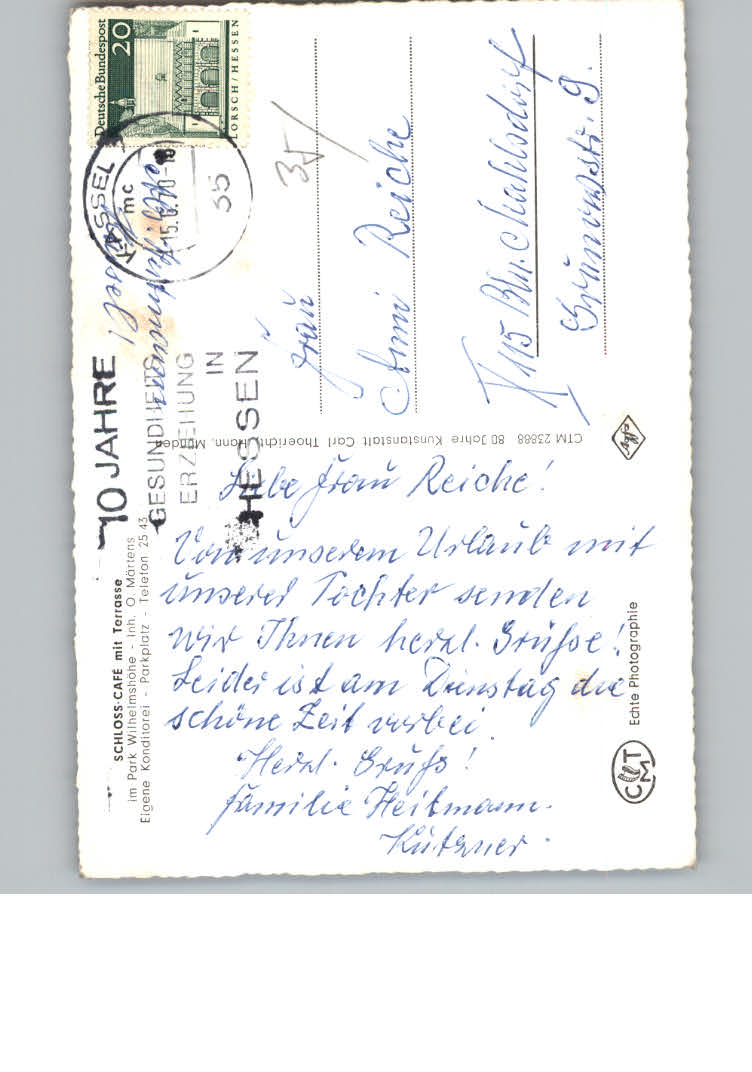 SCHLOSS-CAFÉ mit Terrasse
im Park Wilhelmshöhe - Inh. O. Märtens
Eigene Konditorei - Parkplatz - Telefon 25 43
Liebe Frau Reiche!
Von unserem Urlaub mit
unserer Tochter senden
wir Ihnen herzl. Grüße!
Leider ist am Dienstag die
schöne Zeit vorbei.
Herzl. Gruß!
Familie Heilmann.
Kutzner.
CTM 23868 80 Jahre Kunstanstalt Carl Thoericht, Hann. Münden
Agfa
Echte Photographie
CMT
10 JAHRE
GESUNDHEITS
ERZIEHUNG
IN
HESSEN
KASSEL
mc
35
Kassel!
Deutsche Bundespost
20
LORSCH/HESSEN
35/
Frau
Anni Reiche
X 115 Bln.-Mahlsdorf
Grunowstr. 9.